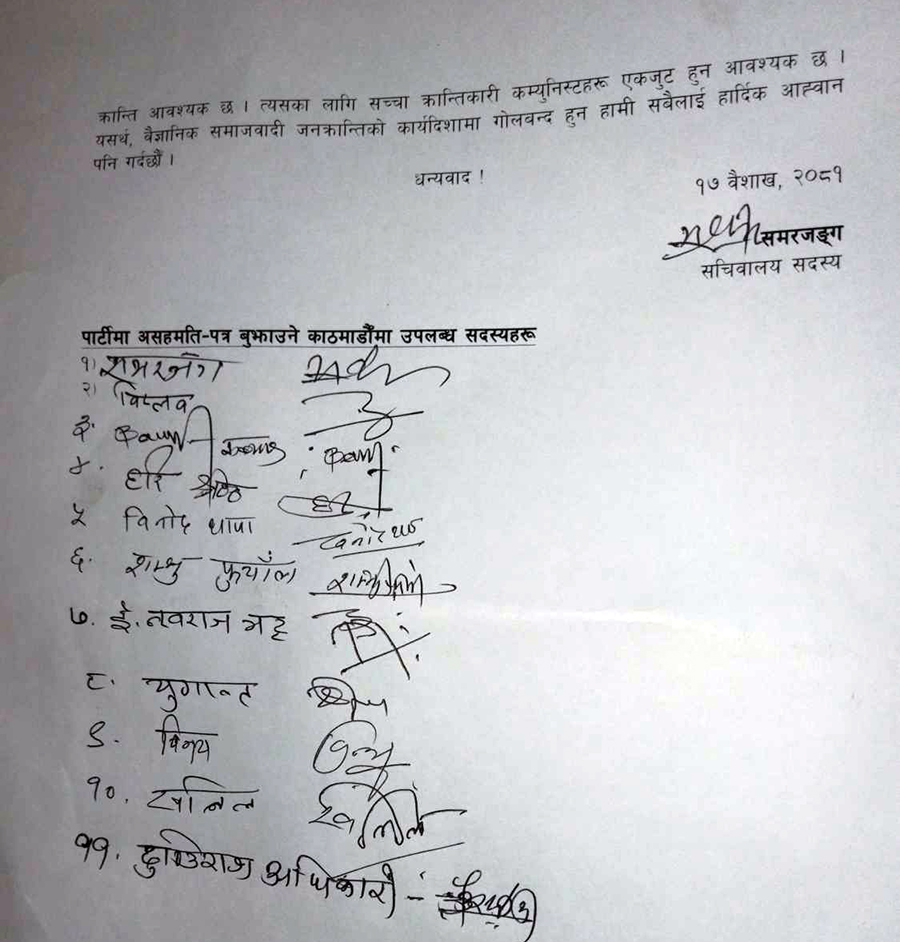 क्रान्ति आवश्यक छ । त्यसका लागि सच्चा क्रान्तिकारी कम्युनिस्टहरू एकजुट हुन आवश्यक छ ।
यसर्थ, वैज्ञानिक समाजवादी जनक्रान्तिको कार्यदिशामा गोलवन्द हुन हामी सबैलाई हार्दिक आह्वान
पनि गर्दछौं ।
धन्यवाद !
१७ वैशाख, २०८१
समरजङ्ग
सचिवालय सदस्य
पार्टीमा असहमति-पत्र बुझाउने काठमाडौंमा उपलब्ध सदस्यहरू
१) समरजंग
२) विप्लव
३.
४. हरि
५ विनोद थापा
६. शम्भु फुयाँल
७. ई. नवराज भट्ट
८. युगान्त
९. विनय
१०. खनिल
११. ढुण्डिराज अधिकारी